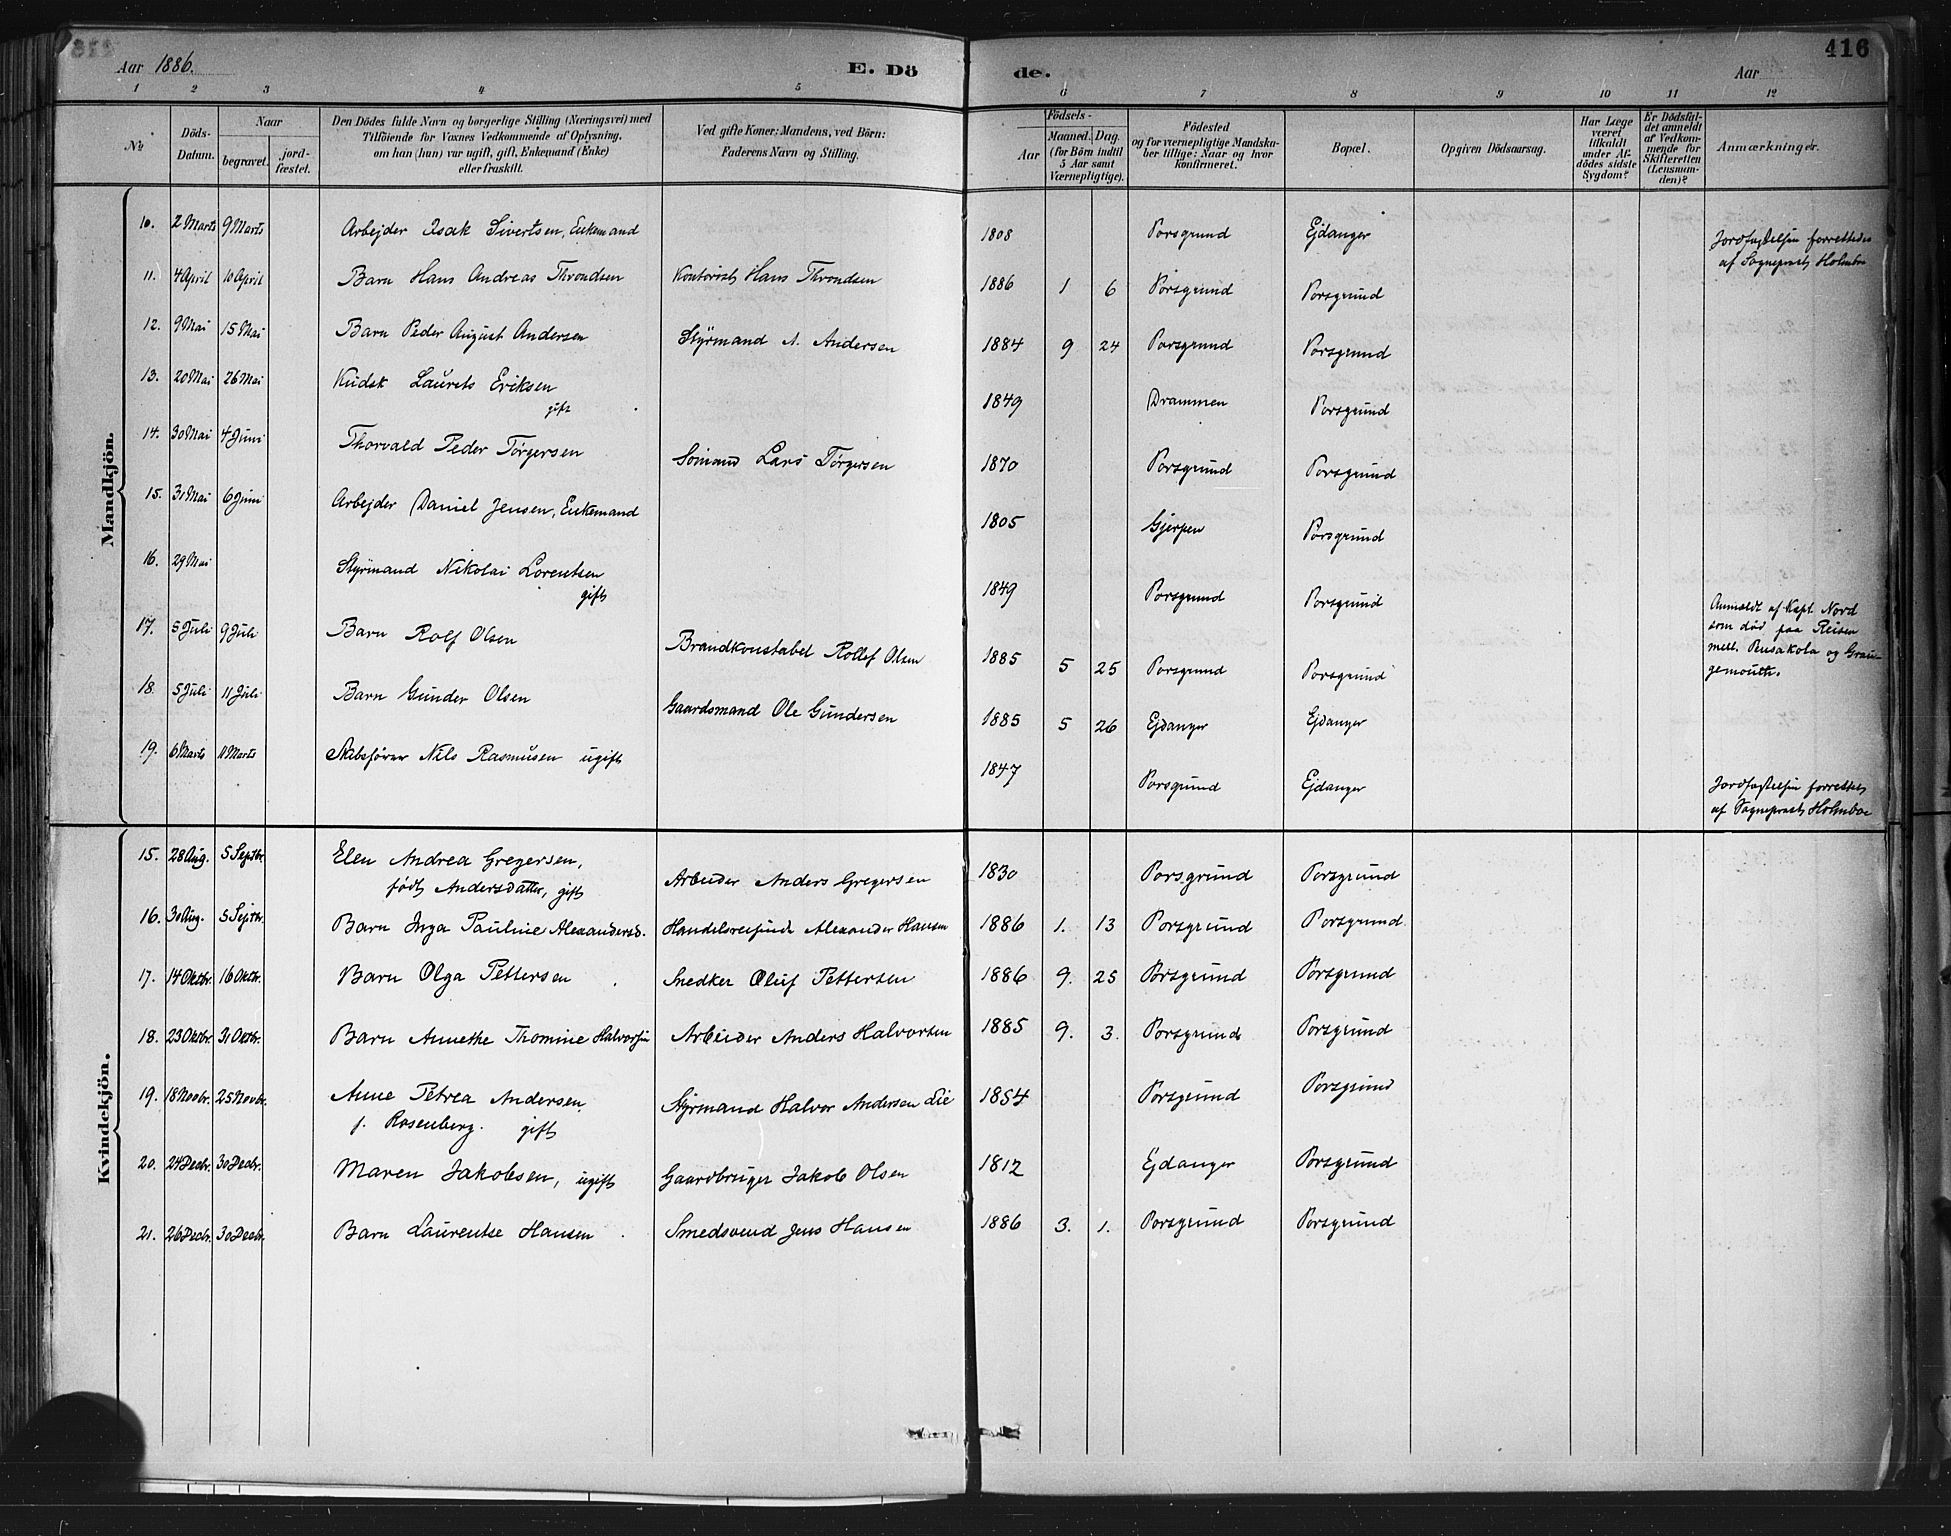 Aar 1886. E. Dö de. Aar 416
1 2 3 4 5 6 7 8 9 10 11 12
No Döds-Datum. Naar begravet. jord-fæstet. Den Dödes fulde Navn og borgerlige Stilling (Næringsvei) med Tilföiende for Voxnes Vedkommende af Oplysning, om han (hun) var ugift, gift, Enkemand (Enke) eller fraskilt. Ved gifte Koner: Mandens, ved Börn: Faderens Navn og Stilling. Födsels- Aar Maaned. Dag. (for Börn indtil 5 Aar samt Værnepligtige). Födested og for værnepligtige Mandskaber tillige: Naar og hvor konfirmeret. Bopæl. Opgiven Dödsaarsag. Har Læge været tilkaldt under Afdödes sidste Sygdom? Er Dödsfaldet anmeldt af Vedkommende for Skifteretten (Lensmanden)? Anmærkninger.
Mandkjön.
10. 2 Marts 9 Marts Arbejder Isak Sivertsen, Enkemand 1808 Porsgrund Ejdanger Jordfæstelsen forrettedes af Sogneprest Holmboe
11. 4 April 10 April Barn Hans Andreas Throndsen Kontorist Hans Throndsen 1886 1 6 Porsgrund Porsgrund
12. 9 Mai 15 Mai Barn Peder August Andersen Styrmand A. Andersen 1884 9 24 Porsgrund Porsgrund
13. 20 Mai 26 Mai Kudsk Laurets Eriksen gift 1849 Drammen Porsgrund
14. 30 Mai 4 Juni Thorvald Peder Törgersen Sömand Lars Törgersen 1870 Porsgrund Porsgrund
15. 31 Mai 6 Juni Arbejder Daniel Jensen, Enkemand 1805 Gjerpen Porsgrund
16. 29 Mai Styrmand Nikolai Lorentsen gift 1849 Porsgrund Porsgrund Anmeldt af Kapt. Nord som död paa Reisen mell. Pensakola og Grangemouth.
17. 5 Juli 9 Juli Barn Rolf Olsen Brandkonstabel Rollef Olsen 1885 5 25 Porsgrund Porsgrund
18. 5 Juli 11 Juli Barn Gunder Olsen Gaardsmand Ole Gundersen 1885 5 26 Ejdanger Ejdanger
19. 6 Marts 11 Marts Skibsförer Nils Rasmusen ugift 1847 Porsgrund Ejdanger Jordfæstelsen forrettet af Sogneprest Holmboe
Kvindekjön.
15. 28 Aug. 5 Septbr. Elen Andrea Gregersen, födt Andersdatter, gift Arbeider Anders Gregersen 1830 Porsgrund Porsgrund
16. 30 Aug. 5 Septbr. Barn Inga Pauline Alexandersd. Handelsreisende Alexander Hansen 1886 1. 13 Porsgrund Porsgrund
17. 14 Oktbr. 16 Oktbr. Barn Olga Pettersen Snedker Oluf Pettersen 1886 9. 25 Porsgrund Porsgrund
18. 23 Oktbr. 31 Oktbr. Barn Annethe Thomine Halvorsen Arbeider Anders Halvorsen 1885 9. 3. Porsgrund Porsgrund
19. 18 Novbr. 25 Novbr. Anne Petrea Andersen f. Rosenberg. gift Styrmand Halvor Andersen Lie 1854 Porsgrund Porsgrund
20. 24 Decbr. 30 Decbr. Maren Jakobsen, ugift Gaardbruger Jakob Olsen 1812 Ejdanger Porsgrund
21. 26 Decbr. 30 Decbr. Barn Laurentse Hansen Smedsvend Jens Hansen 1886 3. 1. Porsgrund Porsgrund